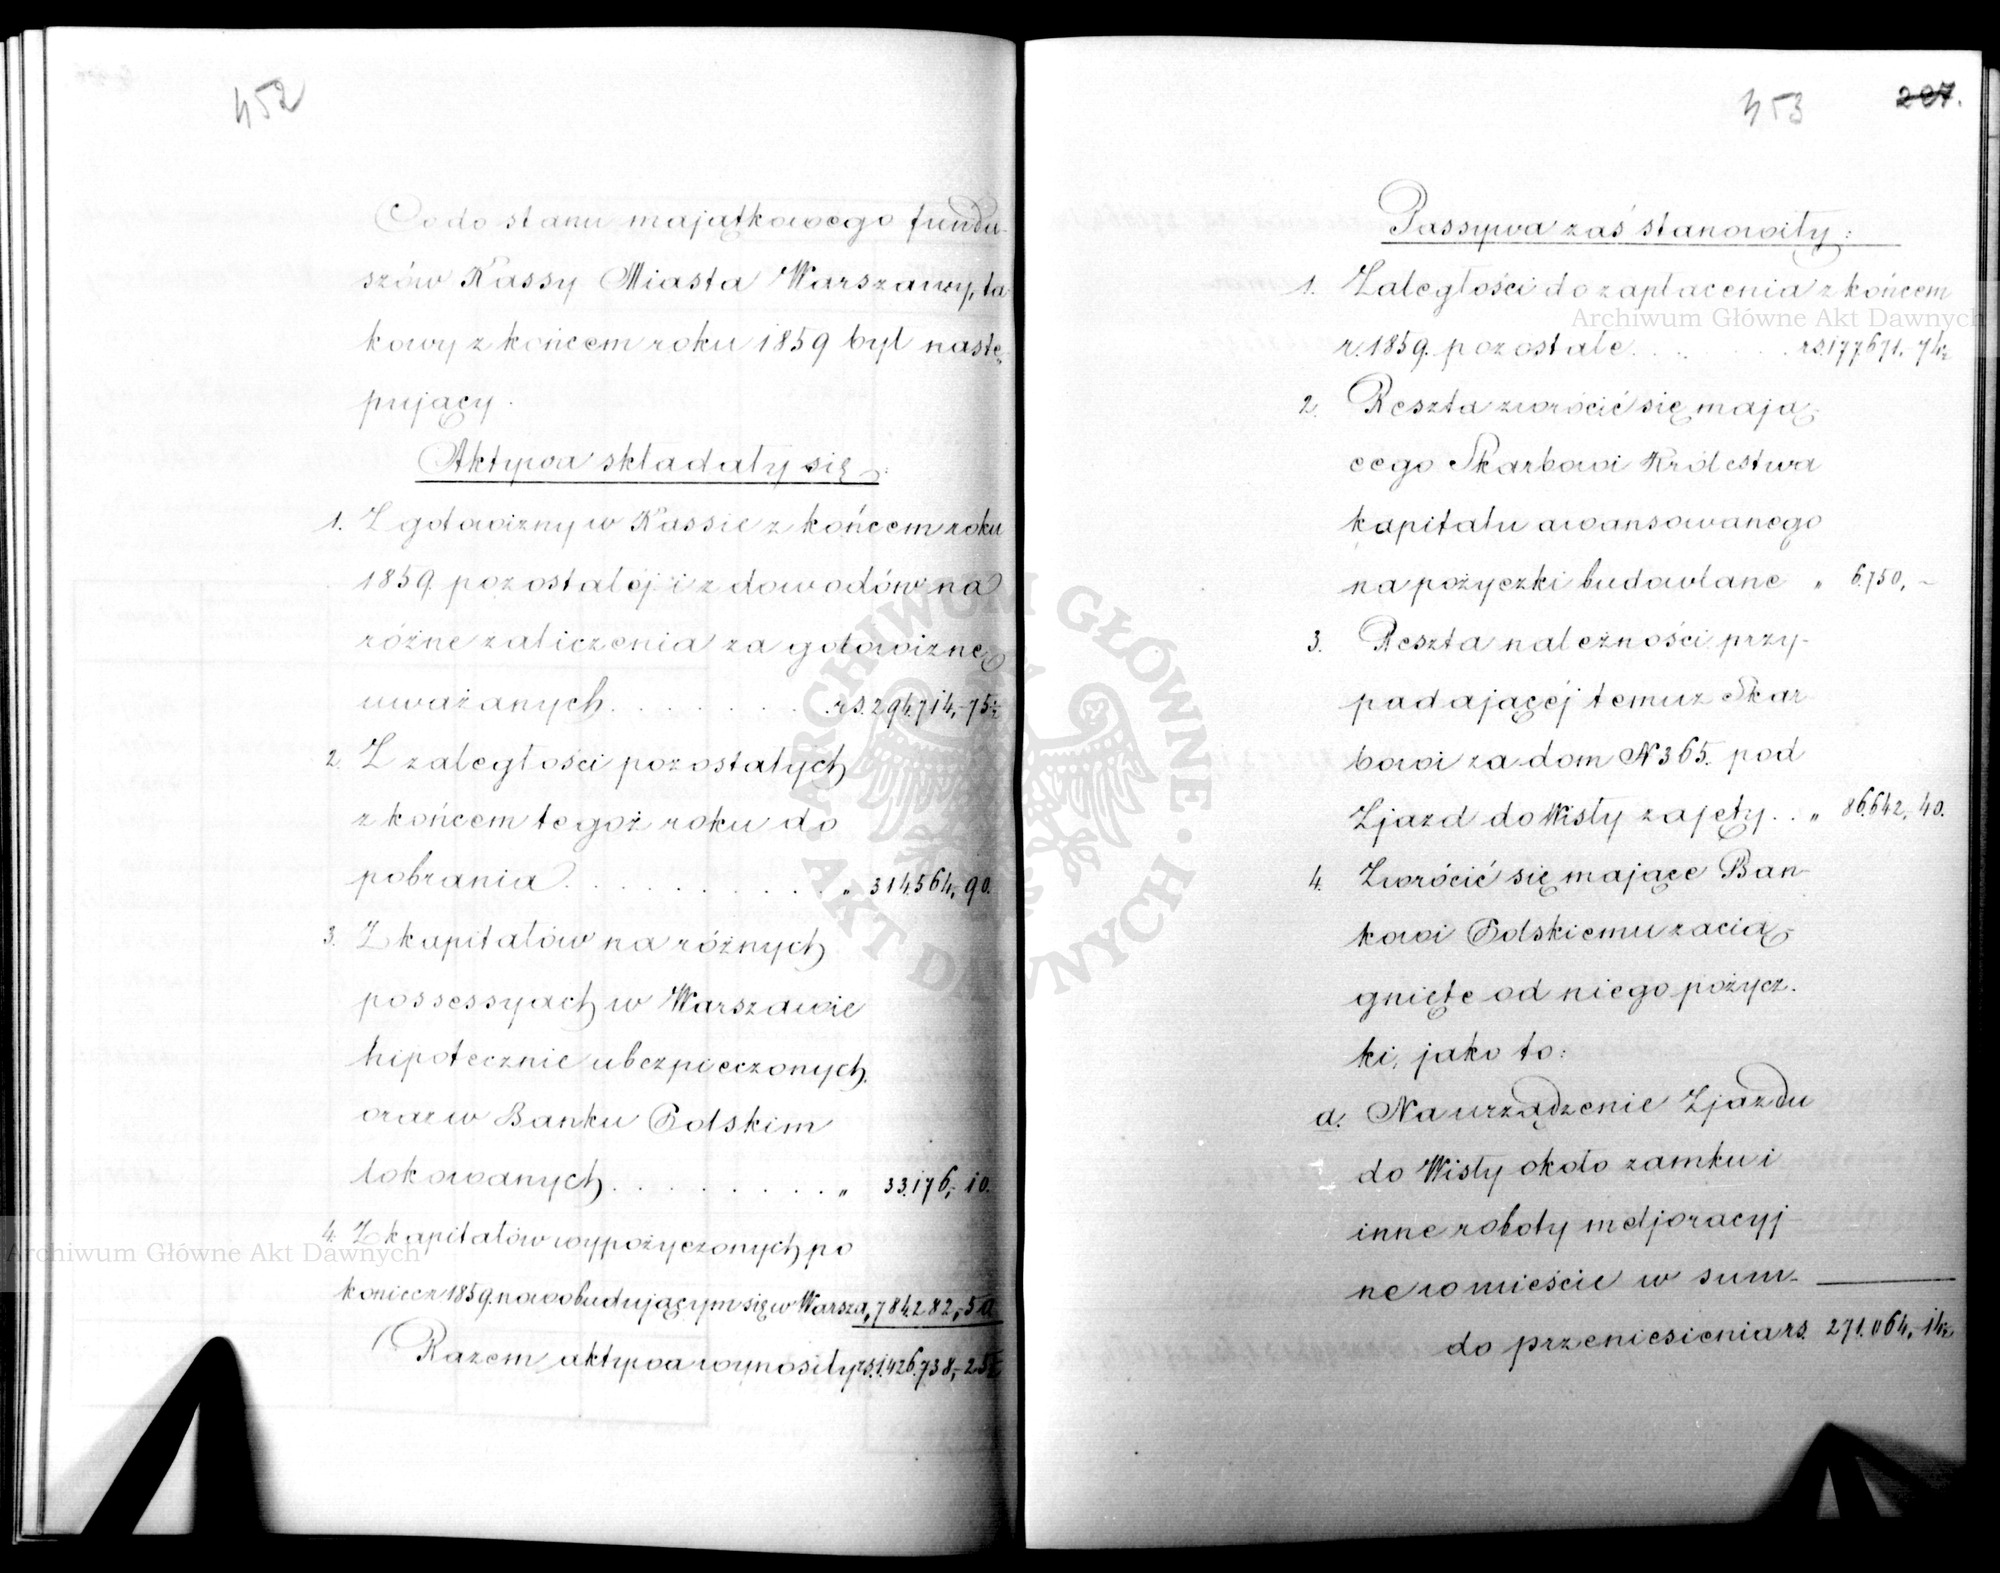 452
Co do stanu majątkowego fundu-
szów Kassy Miasta Warszawy, ta-
kowy z końcem roku 1859 był nastę-
pujący.
Aktywa składały się:
1. Z gotowizny w Kassie z końcem roku
1859. pozostałéj i z dowodów na
różne zaliczenia za gotowiznę
uważanych . . . . . . . . rs. 294.714,-75½
2. Z zaległości pozostałych
z końcem tegoż roku do
pobrania . . . . . . . . . . „ 314.564,-90.
3. Z kapitałów na różnych
possessyach w Warszawie
hipotecznie ubezpieczonych,
oraz w Banku Polskim
lokowanych . . . . . . . . . „ 33.176,-10.
4. Z kapitałów wypożyczonych po
koniec r. 1859. nowobudującym się w Warsza „ 784.282,-50
Razem aktywa wynosiły rs. 1.426.738,-25½
453 207.
Passywa zaś stanowiły:
1. Zaległości do zapłacenia z końcem
r. 1859. pozostałe . . . . . . rs. 177.671,-74½
2. Reszta zwrócić się mają-
cego Skarbowi Królestwa
kapitału awansowanego
na pożyczki budowlane „ 6.750,-
3. Reszta należności przy-
padającéj temuż Skar-
bowi za dom N 365. pod
Zjazd do Wisły zajęty . . „ 86.642,-40.
4. Zwrócić się mające Ban-
kowi Polskiemu zacią-
gnięte od niego pożycz-
ki, jako to:
a. Na urządzenie Zjazdu
do Wisły około zamku i
inne roboty meljoracyj-
ne w mieście w sum-
do przeniesienia rs. 271.064,-14½
Archiwum Główne Akt Dawnych
Archiwum Główne Akt Dawnych
ARCHIWUM GŁÓWNE
AKT DAWNYCH